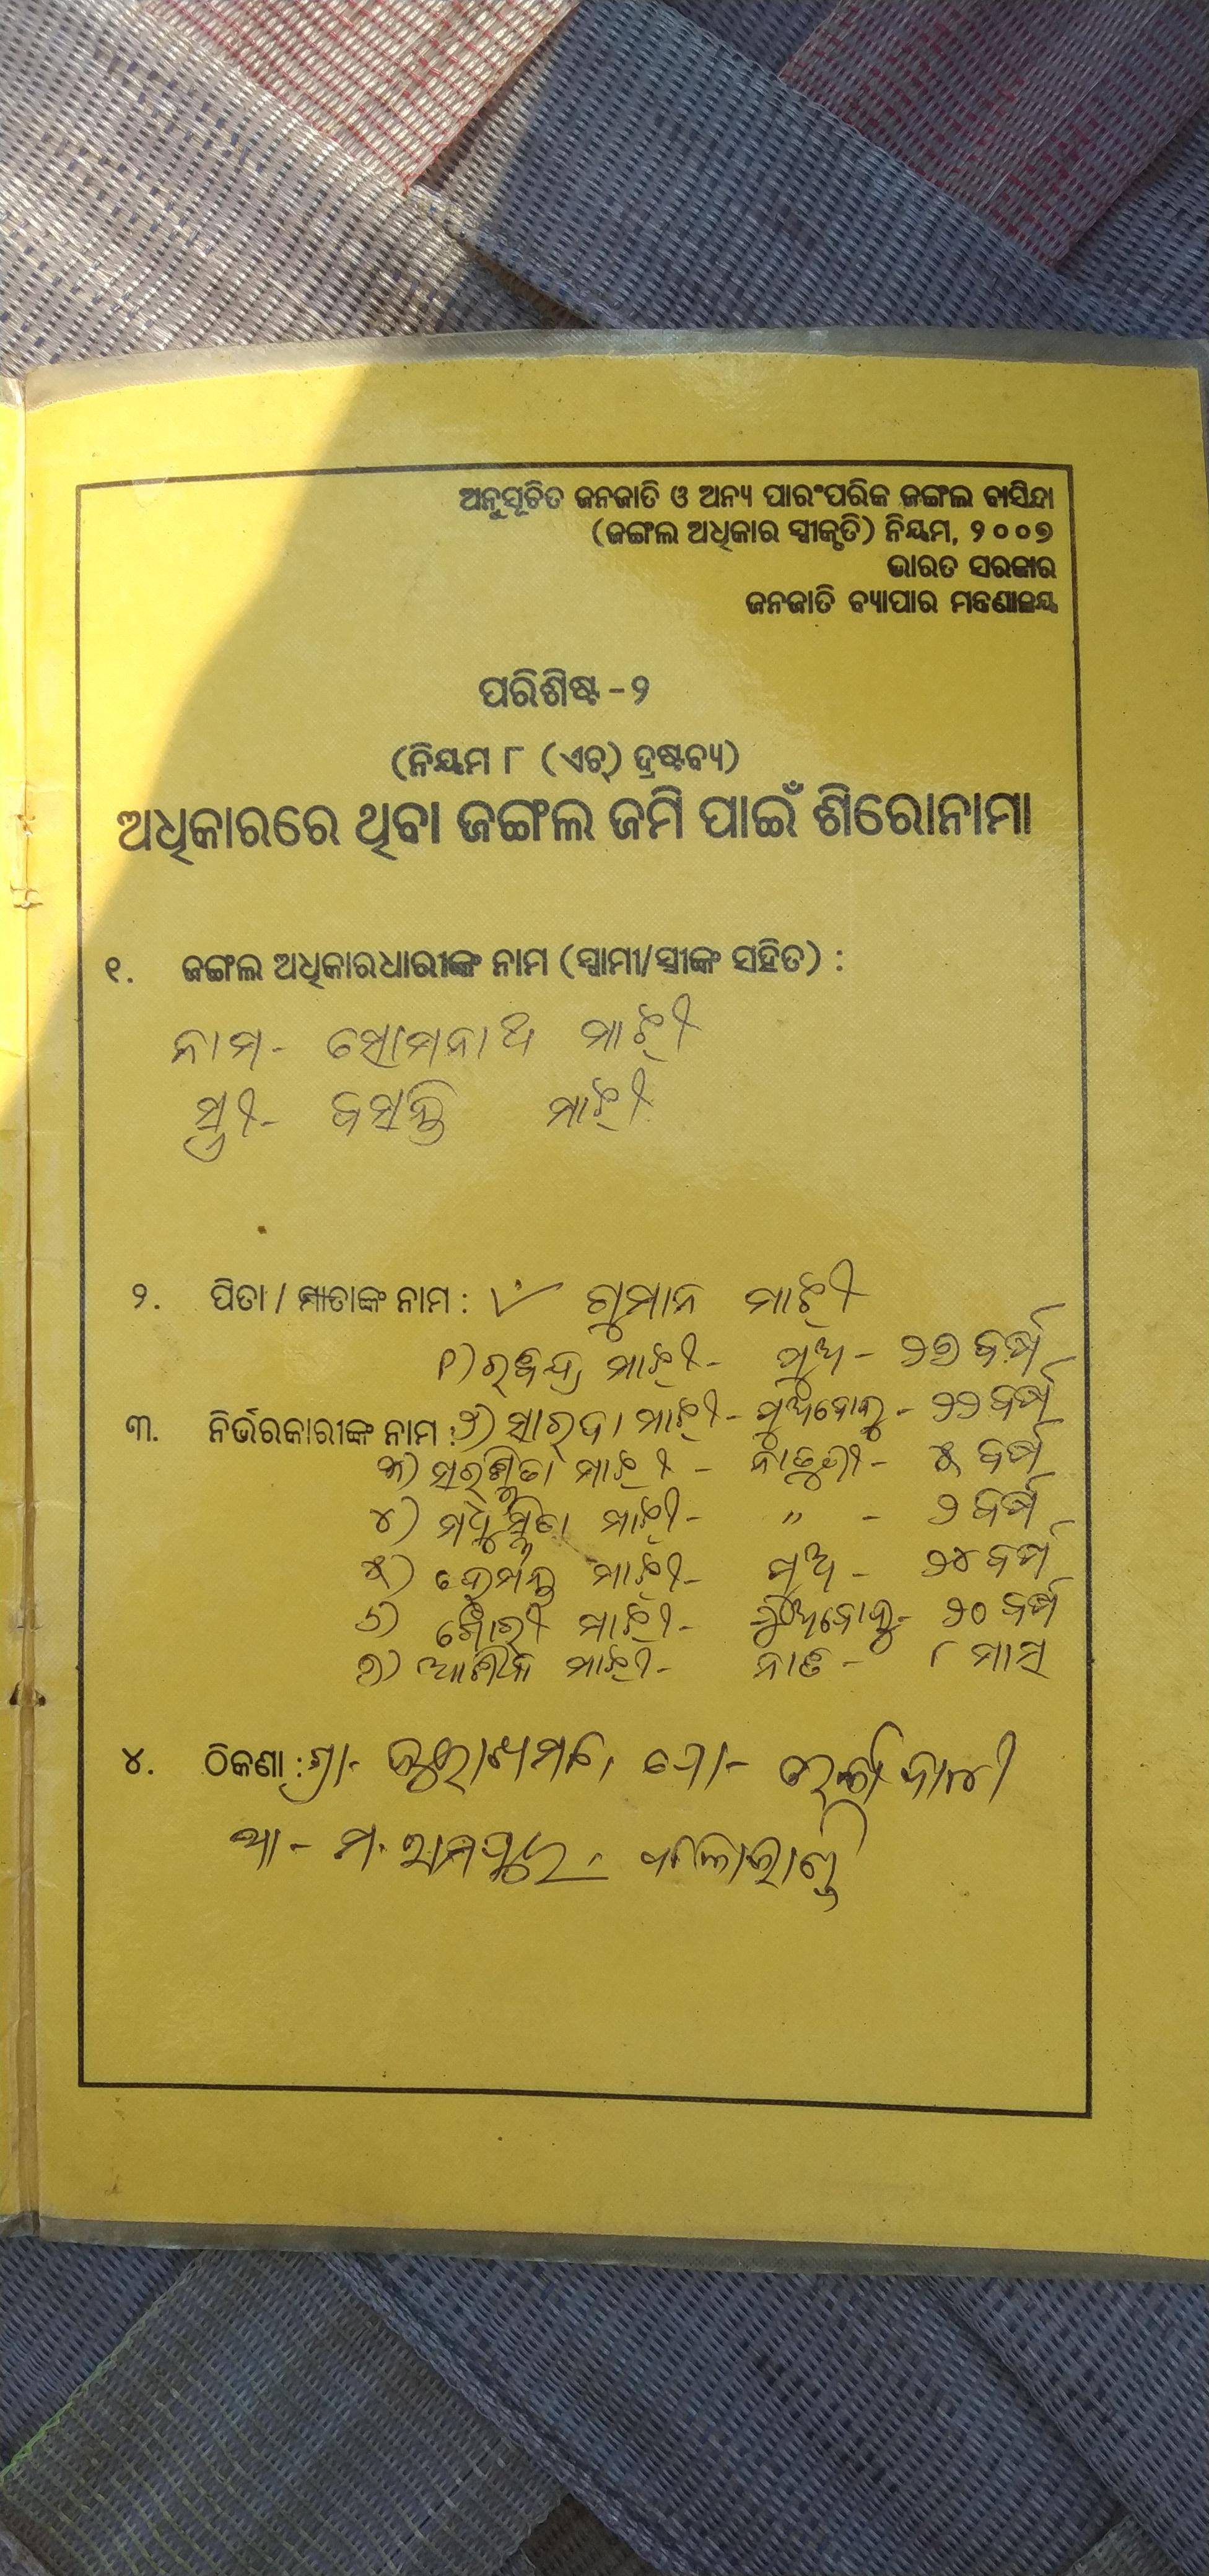 ଅନୁସୂଚିତ ଜନଜାତି ଓ ଅନ୍ୟ ପାରଂପରିକ ଜଙ୍ଗଲ ବାସିନ୍ଦା
(ଜଙ୍ଗଲ ଅଧିକାର ସ୍ୱୀକୃତି) ନିୟମ, ୨୦୦୭
ଭାରତ ସରକାର
ଜନଜାତି ବ୍ୟାପାର ମନ୍ତ୍ରଣାଳୟ
ପରିଶିଷ୍ଟ -୨
(ନିୟମ ୮ (ଏଚ୍) ଦ୍ରଷ୍ଟବ୍ୟ)
ଅଧିକାରରେ ଥିବା ଜଙ୍ଗଲ ଜମି ପାଇଁ ଶିରୋନାମା
୧. ଜଙ୍ଗଲ ଅଧିକାରଧାରୀଙ୍କ ନାମ (ସ୍ୱାମୀ/ସ୍ତ୍ରୀଙ୍କ ସହିତ) :
ନାମ - ସୋମନାଥ ମାଝୀ
ସ୍ତ୍ରୀ - ବସନ୍ତି ମାଝୀ
୨. ପିତା / ମାତାଙ୍କ ନାମ : ଗୁମାନ ମାଝୀ
୧) ରବିନ୍ଦ୍ର ମାଝୀ - ପୁଅ - ୨୭ ବର୍ଷ
୩. ନିର୍ଭରକାରୀଙ୍କ ନାମ : ୨) ସାରଦା ମାଝୀ - ପୁଅବୋହୁ - ୨୨ ବର୍ଷ
୩) ମାଝୀ - ନାତୁଣୀ - ୫ ବର୍ଷ
୪) ମଧୁସ୍ମିତା ମାଝୀ - " - ୨ ବର୍ଷ
୫) ହେମନ୍ତ ମାଝୀ - ପୁଅ - ୨୪ ବର୍ଷ
୬) ଗୌରୀ ମାଝୀ - ପୁଅବୋହୁ - ୨୦ ବର୍ଷ
୭) ମାଝୀ - ନାତି - ୮ ମାସ
୪. ଠିକଣା : ଗ୍ରା -
ଥା - ମ. ରାମପୁର, କଳାହାଣ୍ଡି